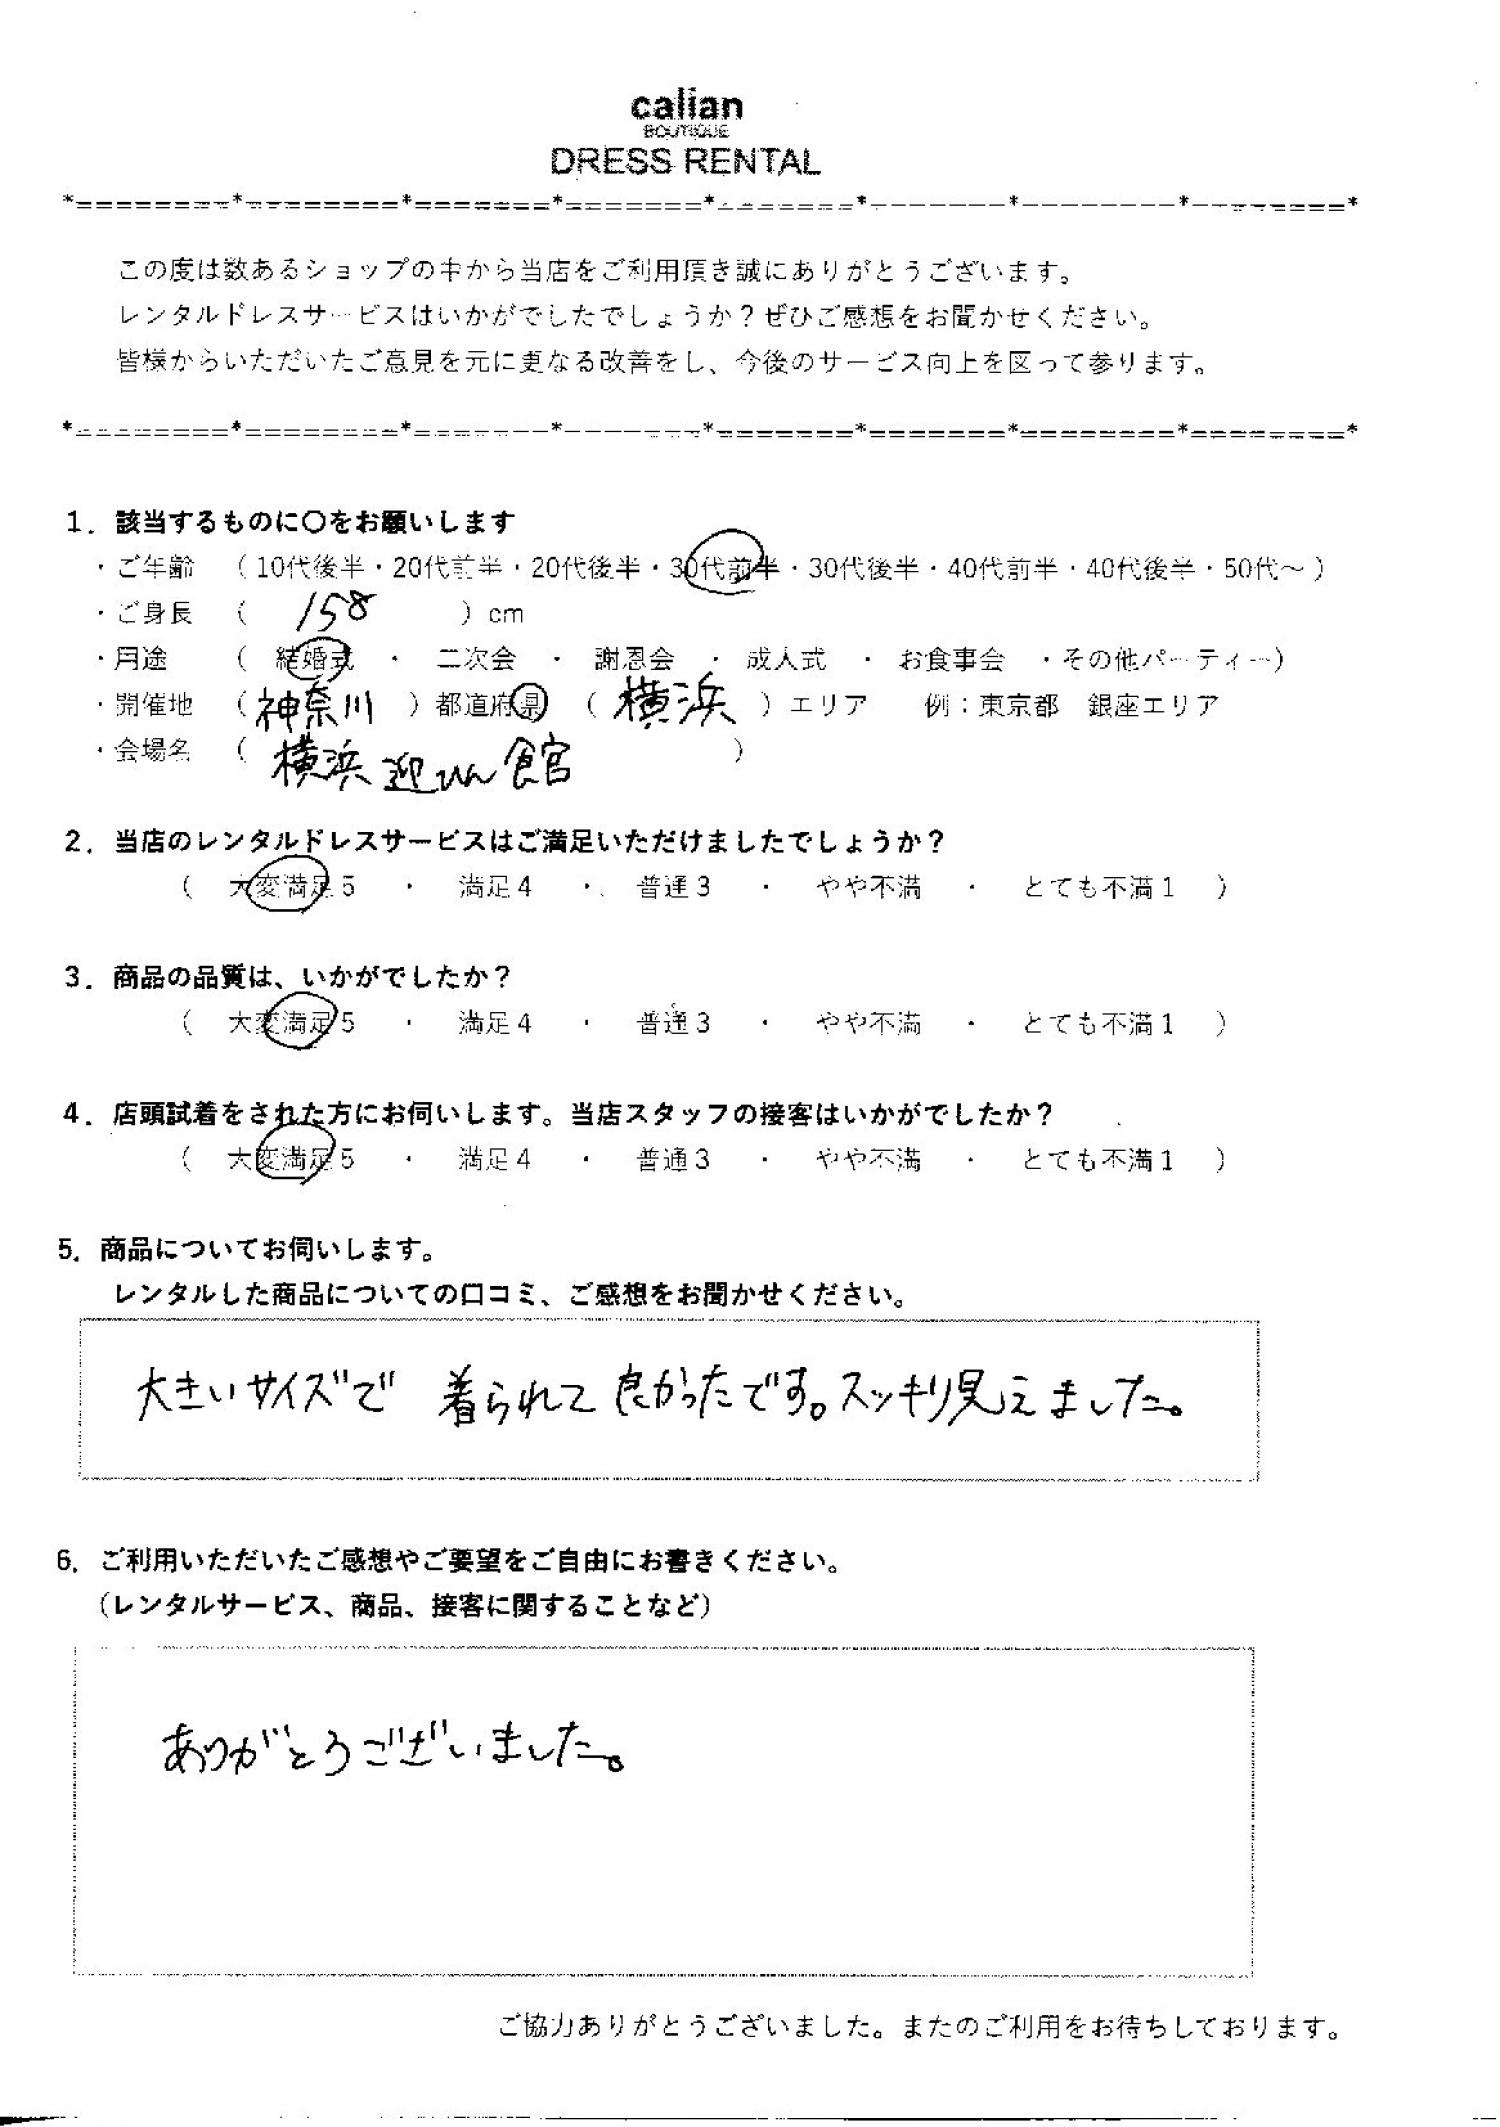 calian
BOUTIQUE
DRESS RENTAL
*========*========*=======*=======*=======*-------*--------*-=======*
この度は数あるショップの中から当店をご利用頂き誠にありがとうございます。
レンタルドレスサービスはいかがでしたでしょうか？ぜひご感想をお聞かせください。
皆様からいただいたご意見を元に更なる改善をし、今後のサービス向上を図って参ります。
*========*========*=======*-------*=======*=======*========*========*
1．該当するものに〇をお願いします
・ご年齢 （10代後半・20代前半・20代後半・30代前半・30代後半・40代前半・40代後半・50代～）
・ご身長 （ 158 ）cm
・用途 （ 結婚式 ・ 二次会 ・ 謝恩会 ・ 成人式 ・ お食事会 ・その他パーティー）
・開催地 （ 神奈川 ）都道府県 （ 横浜 ）エリア 例：東京都 銀座エリア
・会場名 （ 横浜迎ひん館 ）
2．当店のレンタルドレスサービスはご満足いただけましたでしょうか？
（ 大変満足5 ・ 満足4 ・ 普通3 ・ やや不満 ・ とても不満1 ）
3．商品の品質は、いかがでしたか？
（ 大変満足5 ・ 満足4 ・ 普通3 ・ やや不満 ・ とても不満1 ）
4．店頭試着をされた方にお伺いします。当店スタッフの接客はいかがでしたか？
（ 大変満足5 ・ 満足4 ・ 普通3 ・ やや不満 ・ とても不満1 ）
5．商品についてお伺いします。
レンタルした商品についての口コミ、ご感想をお聞かせください。
大きいサイズで 着られて良かったです。スッキリ見えました。
6．ご利用いただいたご感想やご要望をご自由にお書きください。
（レンタルサービス、商品、接客に関することなど）
ありがとうございました。
ご協力ありがとうございました。またのご利用をお待ちしております。